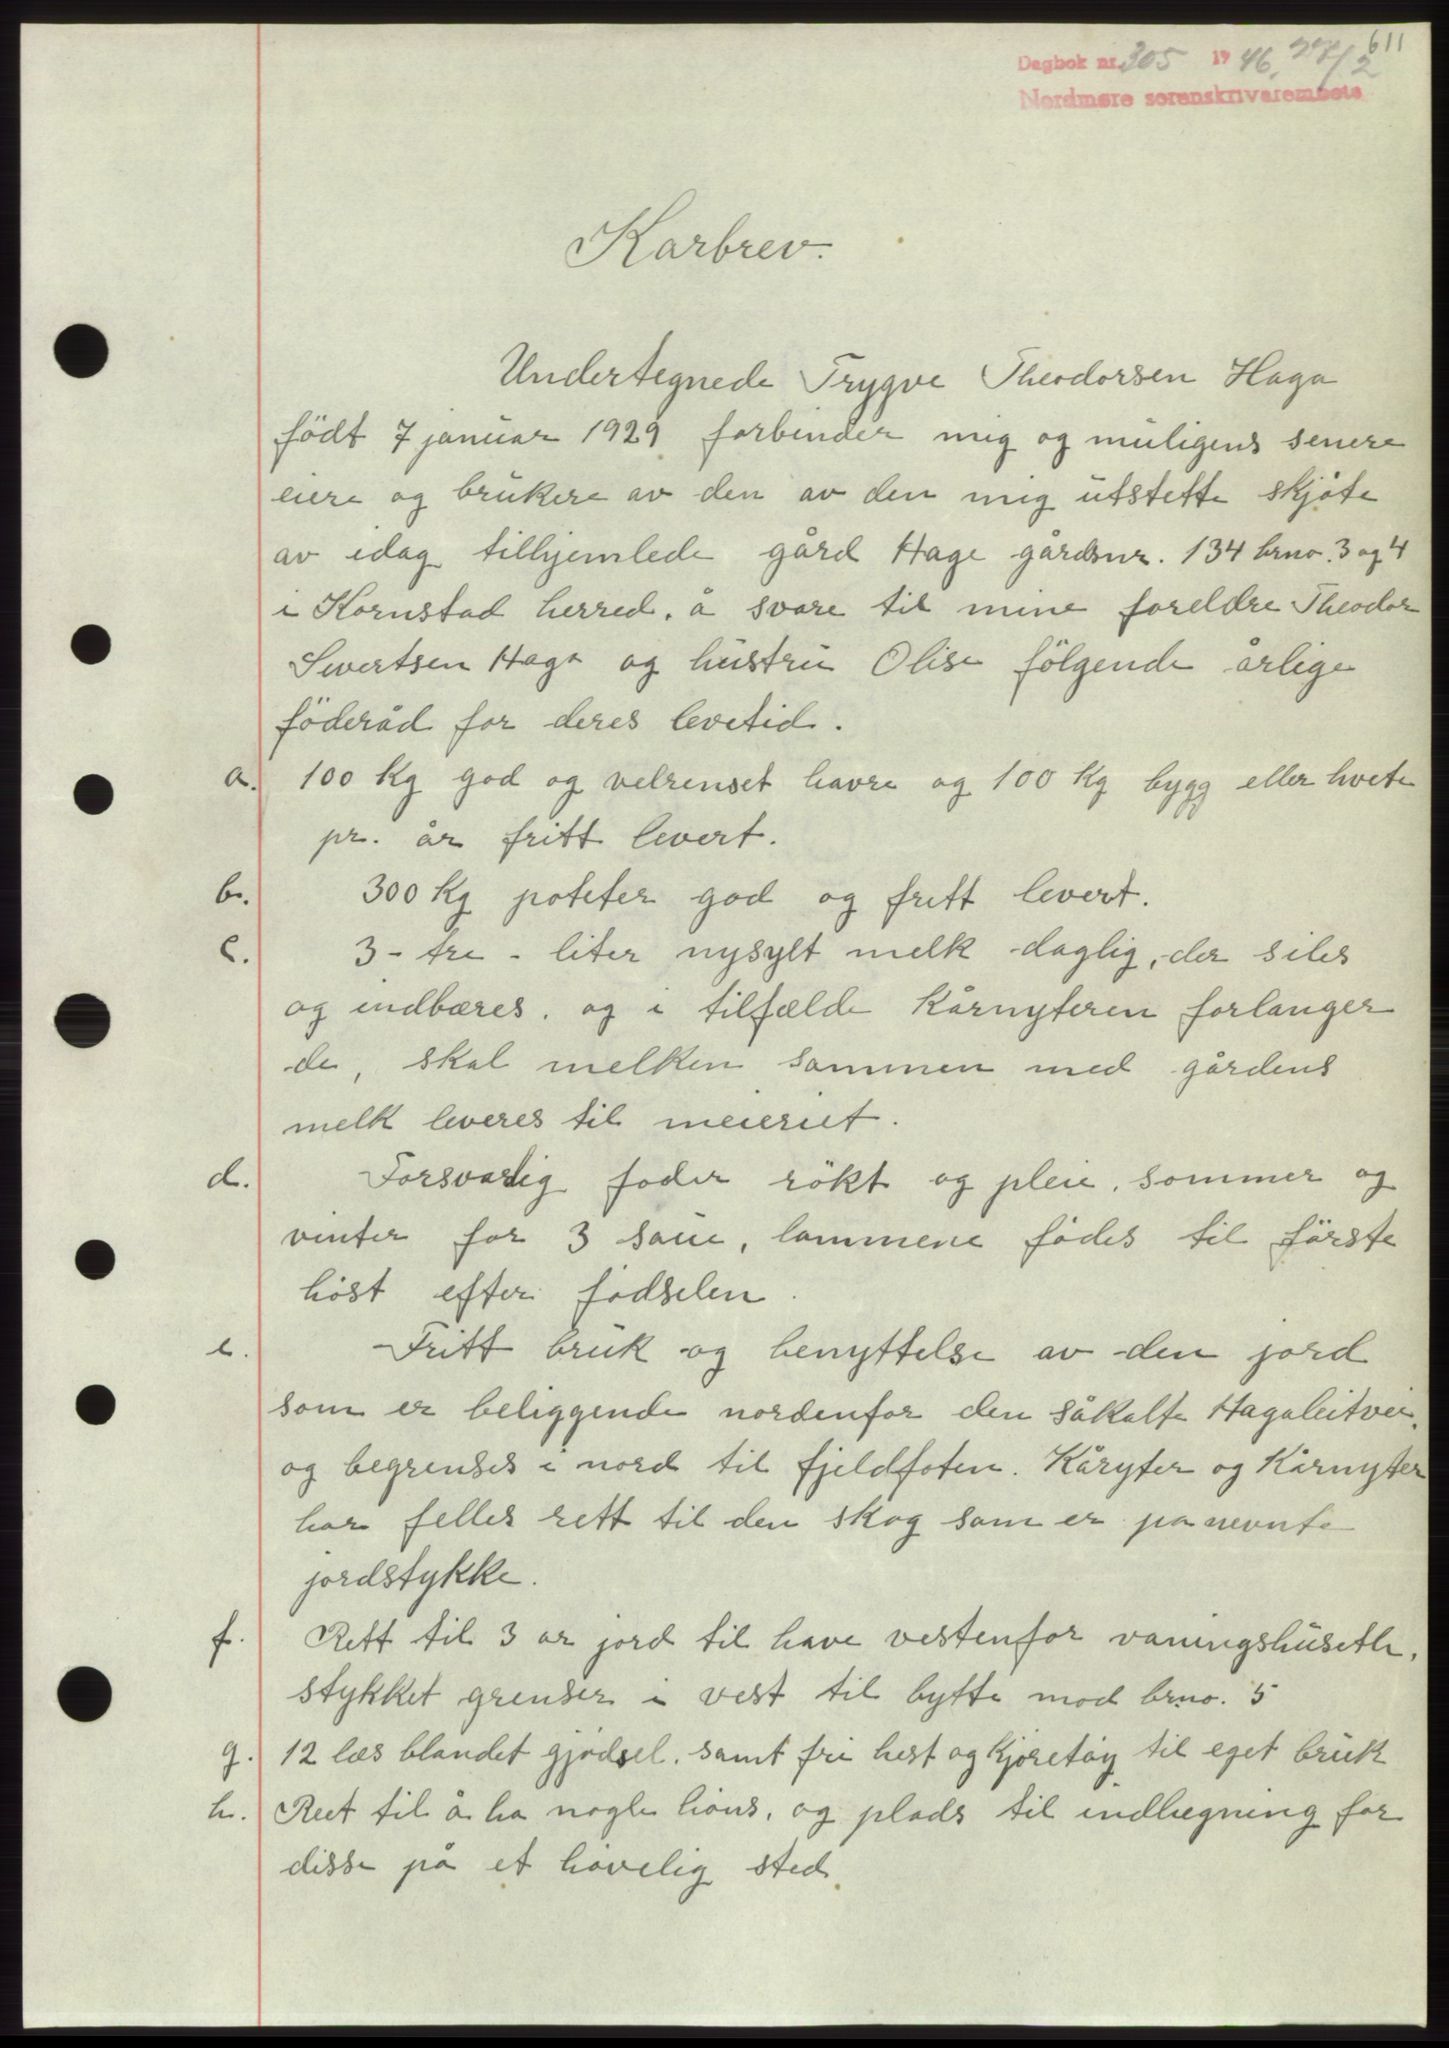 611
Dagbok nr. 305 1946, 27/2
Nordmøre sorenskrivarembete
Karbrev.
Undertegnede Trygve Theodorsen Haga
födt 7 januar 1929 forbinder mig og muligens senere
eiere og brukere av den av den mig utstette skjöte
av idag tilhjemlede gård Hage gårdsnr. 134 brno. 3 og 4
i Kornstad herred. å svare til mine foreldre Theodor
Sivertsen Haga og hustru Olise fölgende årlige
föderåd for deres levetid.
a. 100 Kg god og velrenset havre og 100 Kg bygg eller hvete
pr. år fritt levert.
b. 300 Kg poteter god og fritt levert.
c. 3 - tre - liter nysylt melk daglig, der siles
og indbæres. og i tilfælde Kårnyteren forlanger
de, skal melken sammen med gårdens
melk leveres til meieriet.
d. Forsvarlig foder rökt og pleie, sommer og
vinter for 3 saue, lammene födes til förste
höst efter födselen.
e. Fritt bruk og benyttelse av den jord
som er beliggende nordenfor den såkalte Hagaleitvei.
og begrenses i nord til fjeldfoten. Kåryter og Kårnyter
har felles rett til den skog som er pa nevnte
jordstykke.
f. Rett til 3 ar jord til have vestenfor vaningshusette,
stykket grenser i vest til bytte mod brno. 5
g. 12 læs blandet gjödsel. samt fri hest og Kjöretöy til eget bruk
h. Reet til å ha nogle höns, og plads til indlægning for
disse på et hövelig sted.